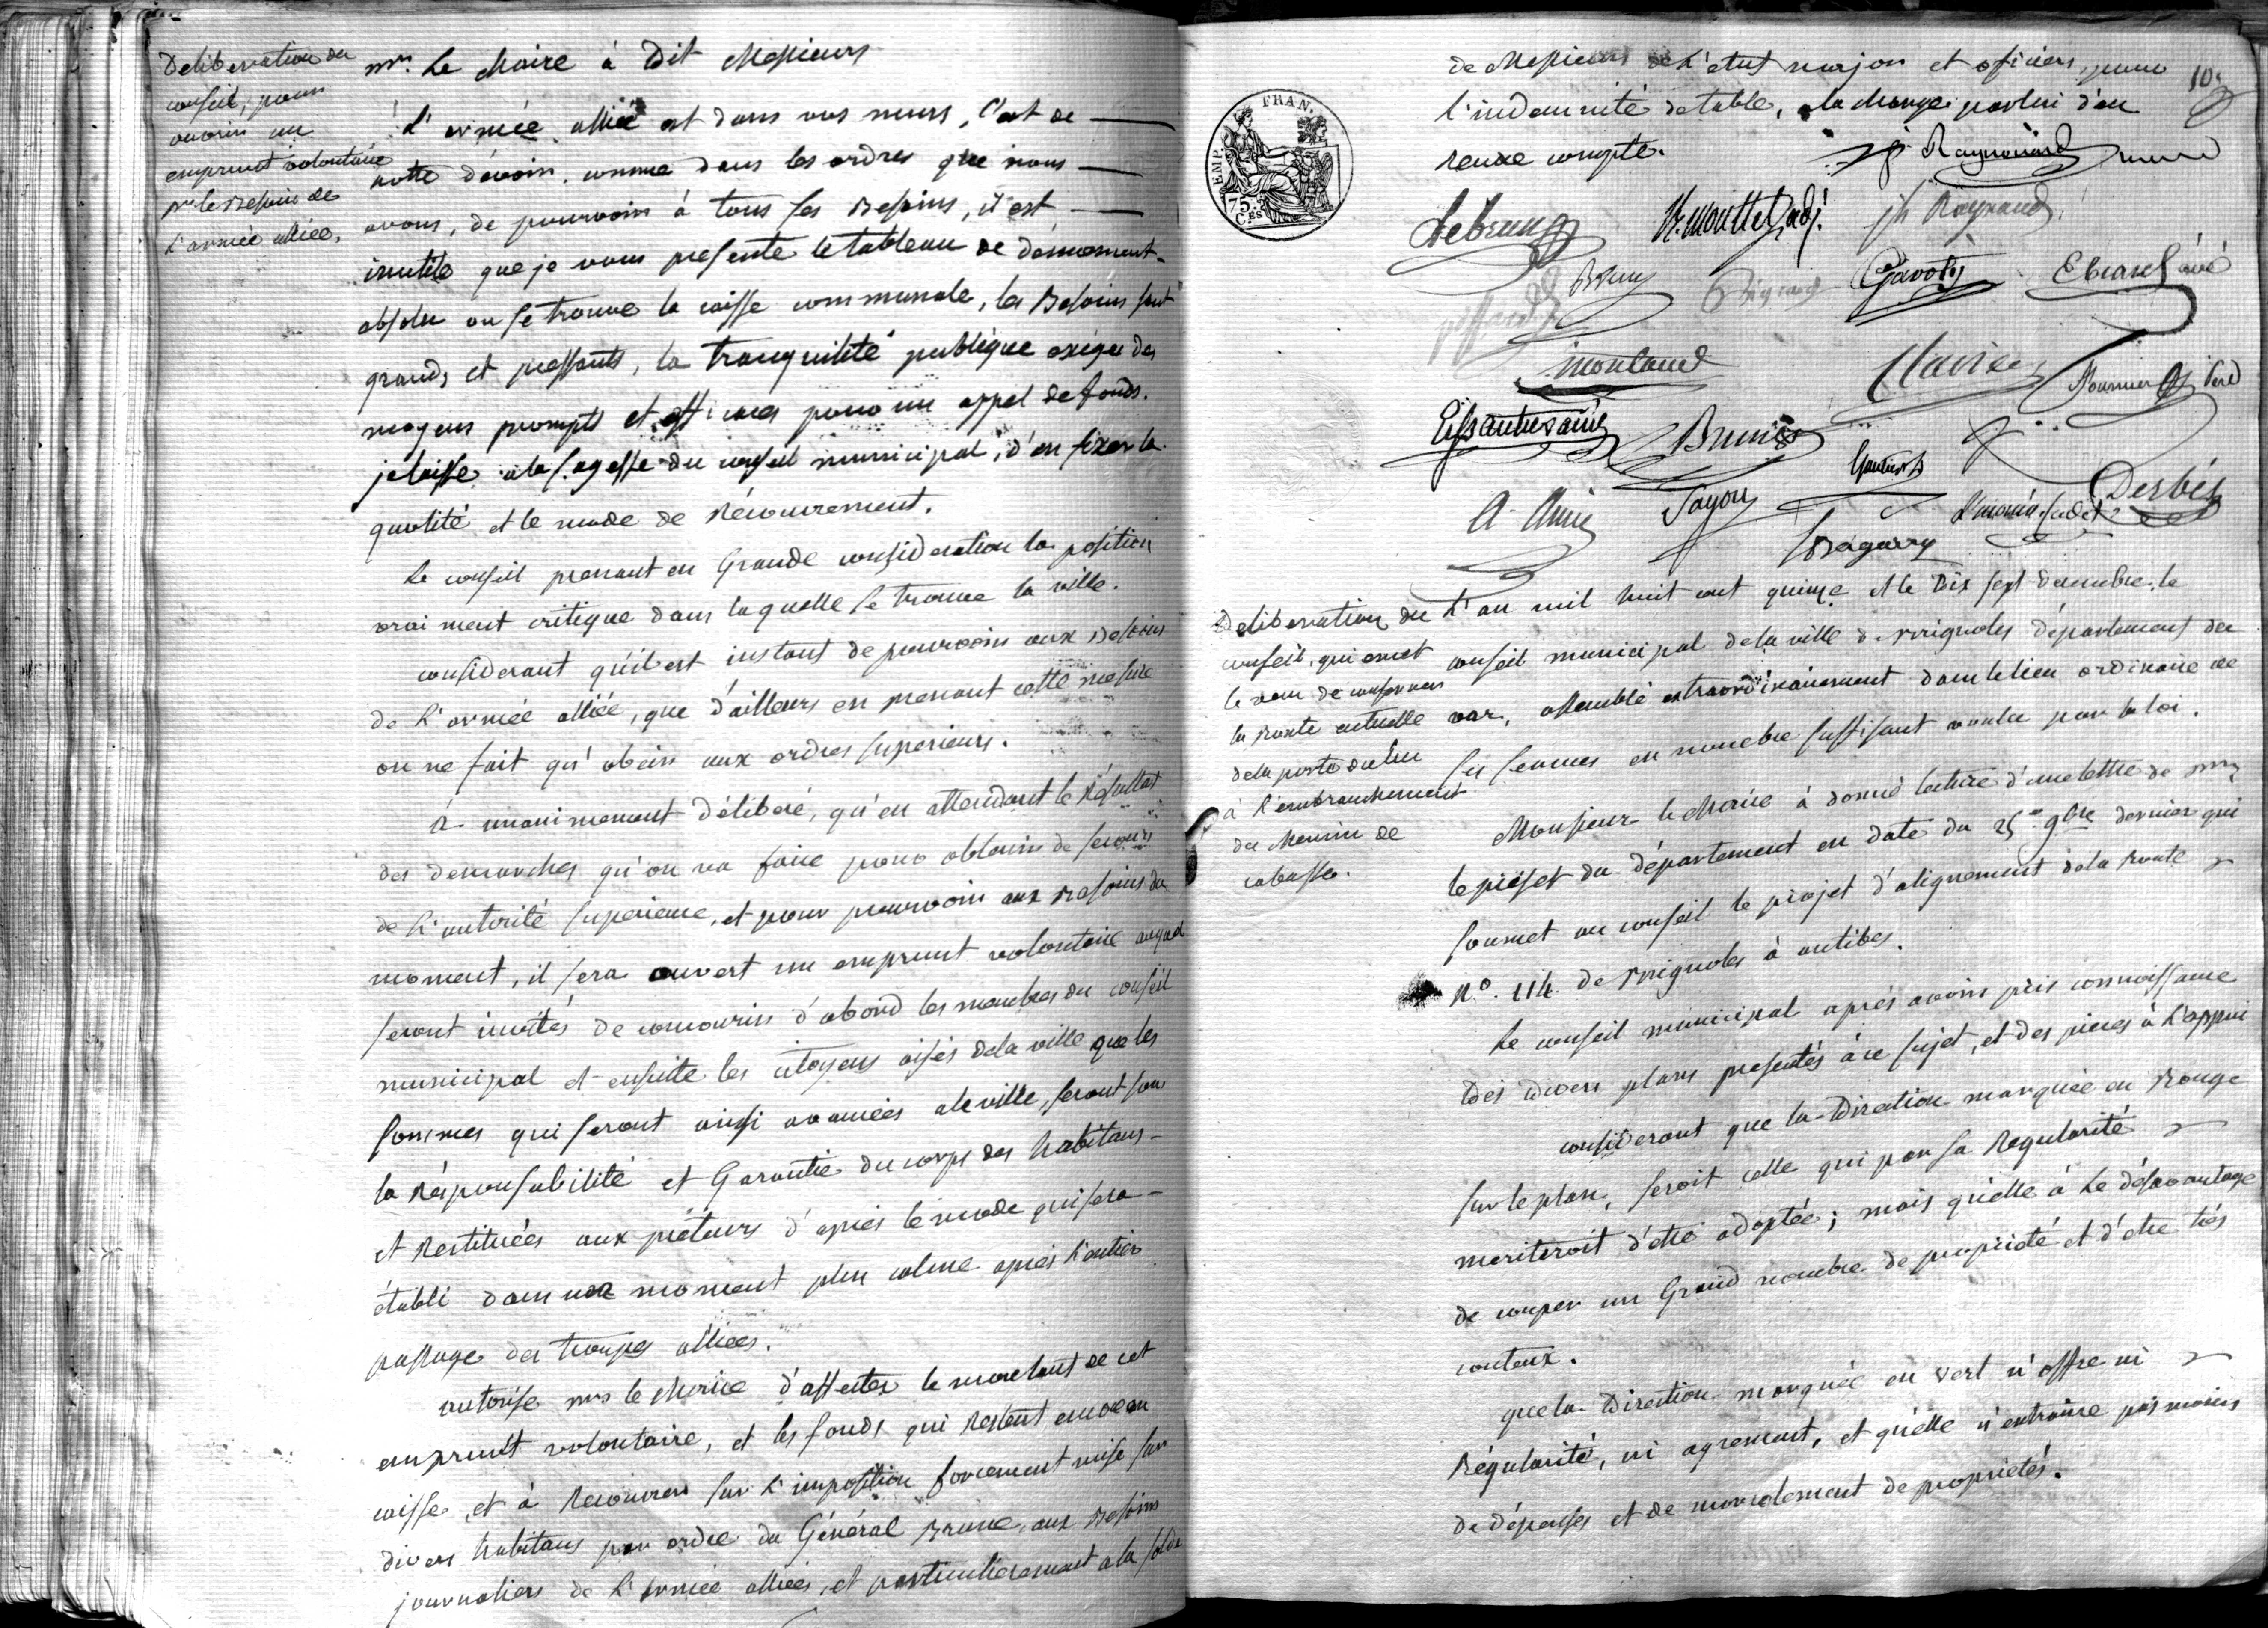 Deliberation du
conseil, pour
ouvrir un
emprunt volontaire
pr. le Besoin de
L'armée alliée,
mr. Le Maire à Dit Messieurs
L'armée alliée est dans nos murs, C'est de
notre dévoir, comme dans les ordres que nous
avons, de pourvoir à tous ses Besoins, il est
inutile que je vous presente le tableau de dénuement
absolu ou se trouve la caisse communale, les Besoins sont
grands et pressants, la tranquilité publique exige des
moyens prompts et efficaces pour un appel de fonds.
je laisse à la sagesse du conseil municipal, d'en fixer la
quotité et le mode de Récouvrement.
Le conseil prenant en Grande consideration la position
vraiment critique dans laquelle se trouve la ville.
considerant qu'il est instant de pourvoir aux Besoins
de L'armée alliée, que d'ailleurs en prenant cette mesure
on ne fait qu'obeir aux ordres superieurs.
à unanimement Délibéré, qu'en attendant le Résultat
des demarches qu'on va faire pour obtenir de secours
de L'autorité superieure, et pour pourvoir aux Besoins du
moment, il sera ouvert un emprunt volontaire auquel
seront invités de concourir d'abord les membres du conseil
municipal et ensuite les citoyens aisés de la ville que les
sommes qui seront ainsi avancées a la ville, seront sous
la Résponsabilité et Garantie du corps des habitans
et Restituées aux préteurs d'après le mode qui sera
établi dans un moment plus calme après l'entier
passage des troupes alliées.
autorise mr le Maire d'affecter le montant de cet
emprunt volontaire, et les fonds qui Restent encore en
caisse, et à Recouvrer sur L'imposition forcement mise sur
divers habitans par ordre du Général Brune, aux Besoins
journaliers de L'armée alliée, et particulierement a la solde
10
de Messieurs de L'etat major et officiers, pour
l'indemnité de table, a la charge par lui d'en
rendre compte.
Raynouard maire
Lebrun
R. Moutte adj.
jh Raynaud
piffard
Brun
Gavoty
Ebrard ainé
montaud
Clavier
Fournier Pere
Eissautier ainé
Brunis
Gautier
A. Amic
Payon
Desbès
Bagarry
Deliberation du
conseil, qui emet
le vœu de conserver
la Route actuelle
de la porte du Luc
à L'embranchement
du chemin de
cabasse.
L'an mil huit cent quinze et le Dix sept decembre, le
conseil municipal de la ville de Brignoles département du
var, assemblé extraordinairement dans le lieu ordinaire de
ses seances en nombre suffisant voulu par la loi.
Monsieur le Maire à donné lecture d'une lettre de mr
le préfet du département en date du 25 9bre dernier qui
soumet au conseil le projet d'alignement de la Route
No. 114 de Brignoles à antibes.
Le conseil municipal après avoir pris connoissance
Des Divers plans presentés à ce sujet, et des pieces à L'appui
considerant que la Direction marquée en Rouge
sur le plan, seroit celle qui par sa Regularité
meriteroit d'etre adoptée; mais qu'elle à Le désavantage
de couper un Grand nombre de propriété et d'etre très
couteux.
que la Direction marquée en vert n'offre ni
Régularité, ni agrement, et qu'elle n'entraine pas moins
de dépenses et de morcelement de proprietés.
FRAN.
EMP.
75
Ces